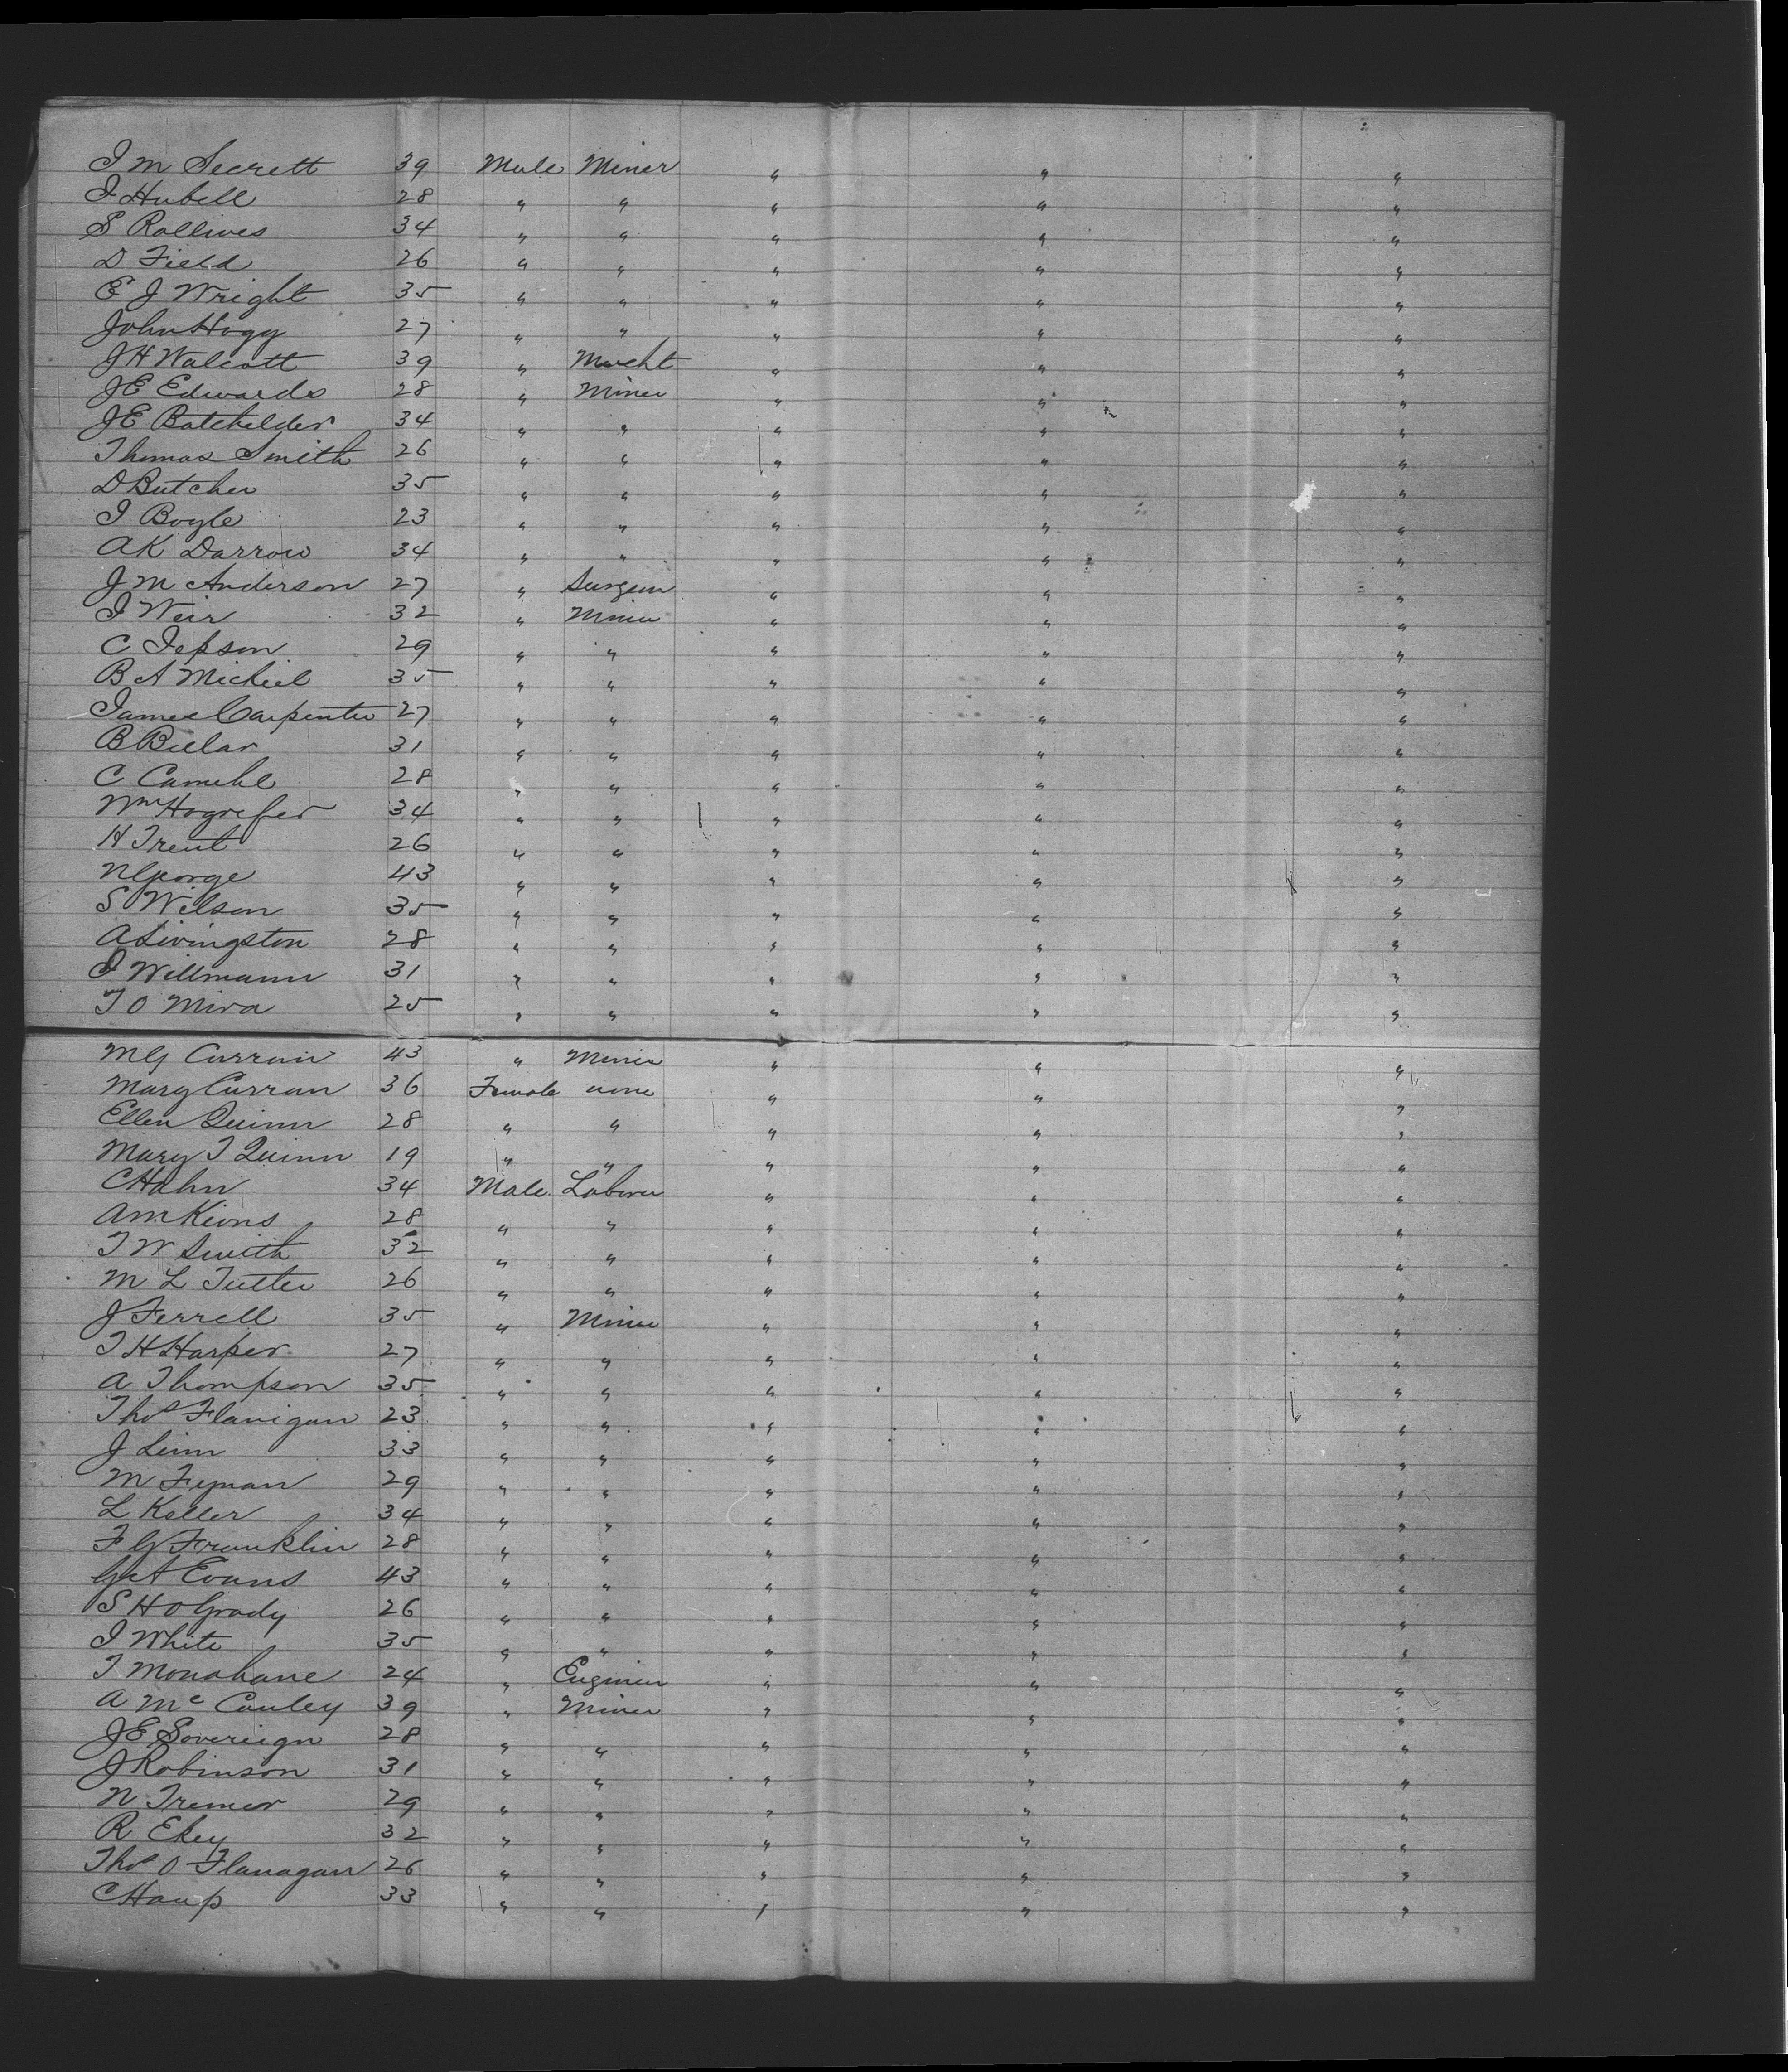 I M Secrett 39 Male Miner " " "
I Hubell 28 " " " " "
S Rollines 34 " " " " "
D Field 26 " " " " "
E J Wright 35 " " " " "
John Hogg 27 " " " " "
J H Walcott 39 " Mercht " " "
J E Edwards 28 " Miner " " "
J E Batchelder 34 " " " " "
Thomas Smith 26 " " " " "
D Butcher 35 " " " " "
I Boyle 23 " " " " "
A K Darrow 34 " " " " "
J M Anderson 27 " Surgeon " " "
I Weir 32 " Miner " " "
C Jepson 29 " " " " "
B A Michiel 35 " " " " "
James Carpenter 27 " " " " "
B Beelar 31 " " " " "
C Camehl 28 " " " " "
Wm Hogrefer 34 " " " " "
H Trent 26 " " " " "
N George 43 " " " " "
S Wilson 35 " " " " "
A Livingston 28 " " " " "
I Willmann 31 " " " " "
T O Mira 25 " " " " "
M G Curran 43 " Miner " " "
Mary Curran 36 Female none " " "
Ellen Quinn 28 " " " " "
Mary T Quinn 19 " " " " "
C Hahn 34 Male Laborer " " "
A M Kions 28 " " " " "
T W Smith 32 " " " " "
M L Tutler 26 " " " " "
J Ferrell 35 " Miner " " "
T H Harper 27 " " " " "
A Thompson 35 " " " " "
Thos Flanigan 23 " " " " "
J Linn 33 " " " " "
M Fynan 29 " " " " "
L Keller 34 " " " " "
F G Franklin 28 " " " " "
G A Evans 43 " " " " "
S H O Grady 26 " " " " "
I White 35 " " " " "
T Monahane 24 " Engineer " " "
A Mc Cauley 39 " Miner " " "
J E Sovereign 28 " " " " "
J Robinson 31 " " " " "
N Tremer 29 " " " " "
R Ekey 32 " " " " "
Thos O Flanagan 26 " " " " "
C Haup 33 " " " " "